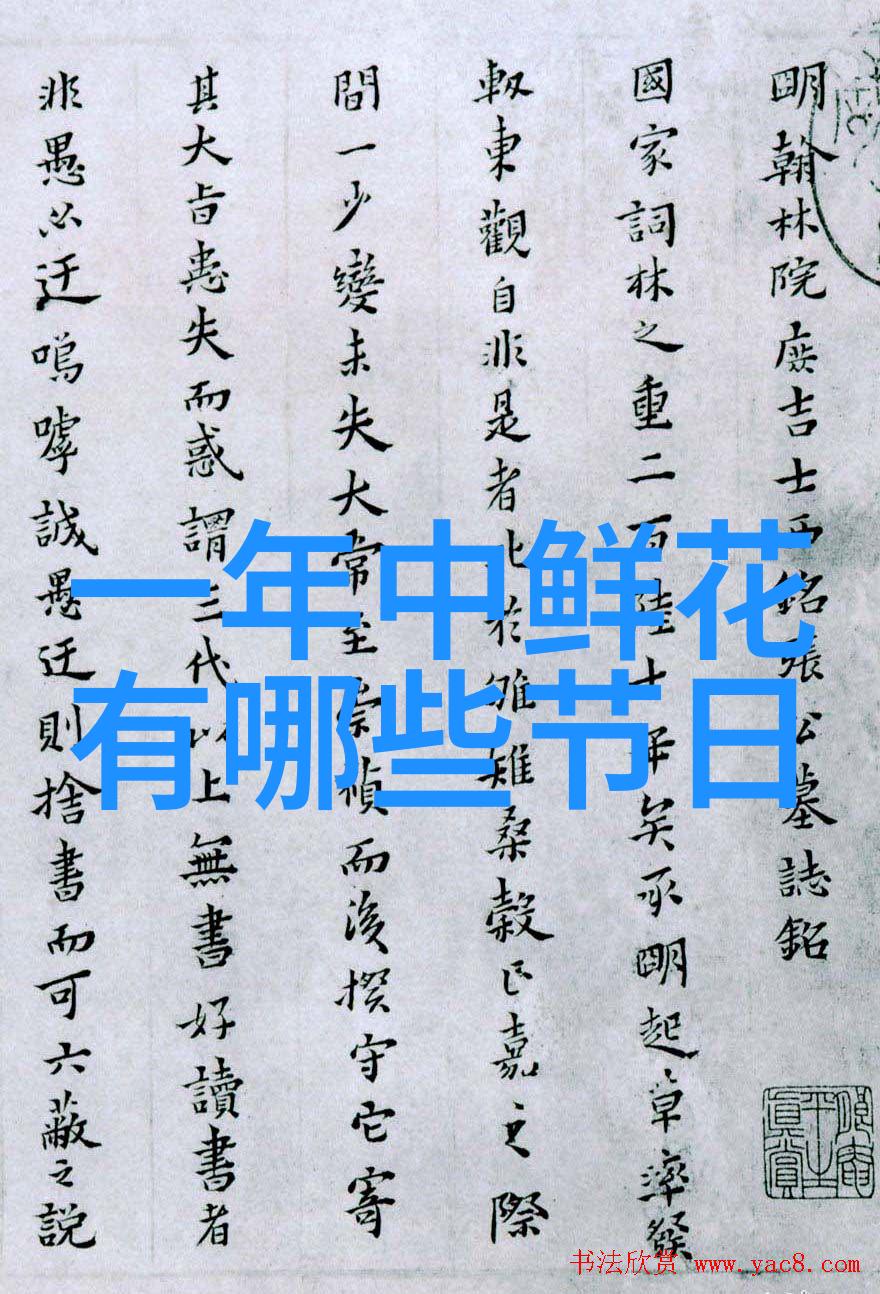 明翰林院庶吉士西銘張公墓誌銘
國家詞林之重二百陸十年矣承明起草率發
軔東觀自非是者比於雊雉桑穀正嘉之際
間一少變未失大常至崇禎而後揆守它寄
其大旨患失而惑謂三代以上無書好讀書者
非愚必迂嗚嘑誠愚迂則捨書而可六蔽之説
一年中鲜花
有哪些节日
书法欣赏 www.yac8.com